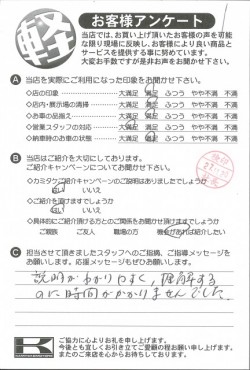 軽
お客様アンケート
当店では、お買い上げ頂いたお客様の声を可能
な限り現場に反映し、お客様により良い商品と
サービスを提供する事に努めています。
大変お手数ですが是非お声をお聞かせ下さい。
A 当店を実際にご利用になった印象をお聞かせ下さい。
◇店の印象 大満足 満足 ふつう やや不満 不満
◇店内・展示場の清掃 大満足 満足 ふつう やや不満 不満
◇お車の品揃え 大満足 満足 ふつう やや不満 不満
◇営業スタッフの対応 大満足 満足 ふつう やや不満 不満
◇納車時のお車の状態 大満足 満足 ふつう やや不満 不満
B 当店はご紹介を大切にしております。
ご紹介キャンペーンについてお聞かせ下さい。
◇カミタケご紹介キャンペーンのご説明はありましたでしょうか
はい いいえ
◇ご紹介を頂けますでしょうか
はい いいえ
◇具体的にご紹介頂ける方とのご関係をお聞かせ頂けますでしょうか
ご親戚 ご友人 職場の方 機会があれば紹介したい
C 担当させて頂きましたスタッフへのご指摘、ご指導メッセージを
お願いします。応援メッセージもぜひお願いします。
説明がわかりやすく、理解する
のに時間がかかりませんでした。
K
ご協力に心よりお礼を申し上げます。
今後とも宜しくお引き立てご愛顧の程お願い申し上げます。
またのご来店を心からお待ちしております。